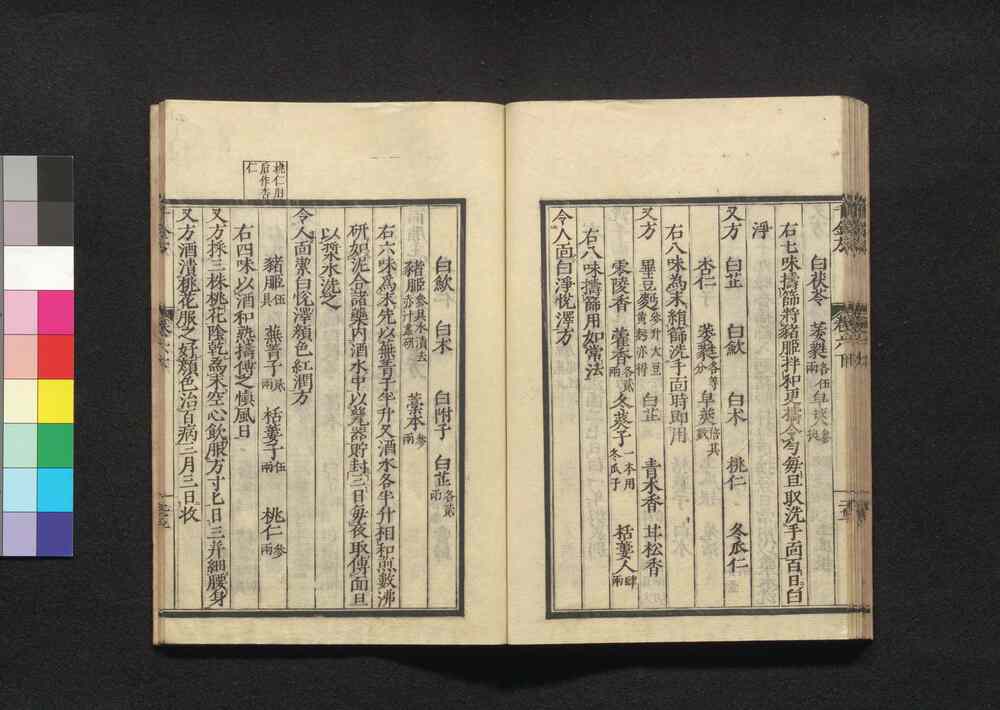 白茯苓 萎蕤各伍兩 皁莢參挺
右七味擣篩將豬胆拌和更擣令勻每旦取洗手面百日白
淨
又方 白芷 白歛 白术 桃仁 冬瓜仁
杏仁 萎蕤各等分 皁莢倍其數
右八味爲末絹篩洗手面時即用
又方 畢豆麪參升大豆黄麪亦得 白芷 青木香 甘松香
零陵香 藿香各貳兩 冬葵子一本用冬瓜子 栝蔞人肆兩
右八味擣篩用如常法
令人面白淨悅澤方
白歛 白术 白附子 白芷各貳兩
豬胆參具水漬去赤汁盡研 藁本參兩
右六味爲末先以蕪菁子半升又酒水各半升相和煎數沸
研如泥合諸藥内酒水中以甆器貯封三日每夜取傅面旦
以漿水洗之
令人面潔白悅澤顏色紅潤方
豬胆伍具 蕪菁子貳兩 栝蔞子伍兩 桃仁參兩
右四味以酒和熟擣傅之愼風日
又方採三株桃花陰乾爲末空心飲服方寸匕日三并細腰身
又方酒漬桃花服之好顏色治百病三月三日收
桃仁用
后作杏
仁